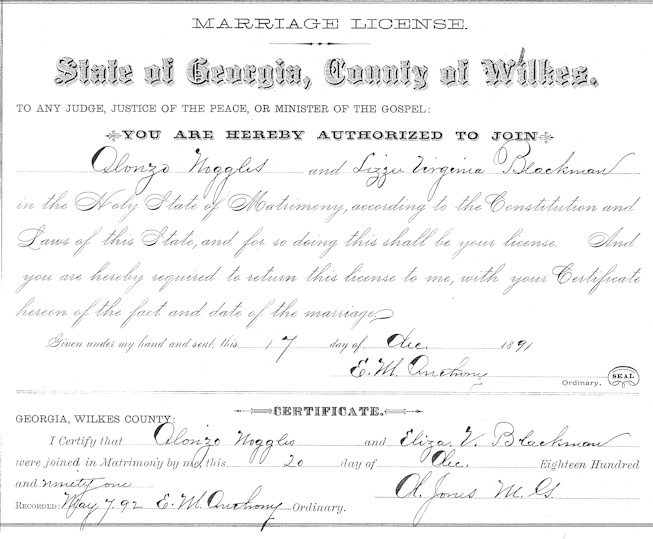 MARRIAGE LICENSE.
State of Georgia, County of Wilkes.
TO ANY JUDGE, JUSTICE OF THE PEACE, OR MINISTER OF THE GOSPEL:
YOU ARE HEREBY AUTHORIZED TO JOIN
Alonzo Noggles and Lizzie Virginia Blackman
in the Holy State of Matrimony, according to the Constitution and
Laws of this State, and for so doing this shall be your license. And
you are hereby required to return this license to me, with your Certificate
hereon of the fact and date of the marriage.
Given under my hand and seal, this 17 day of Dec. 1891
E. M. Anthony
Ordinary. SEAL
CERTIFICATE.
GEORGIA, WILKES COUNTY:
I Certify that Alonzo Noggles and Eliza. V. Blackman
were joined in Matrimony by me, this 20 day of Dec. Eighteen Hundred
and ninety one
A. Jones M. G.
RECORDED: May 7. 92 E. M. Anthony Ordinary.